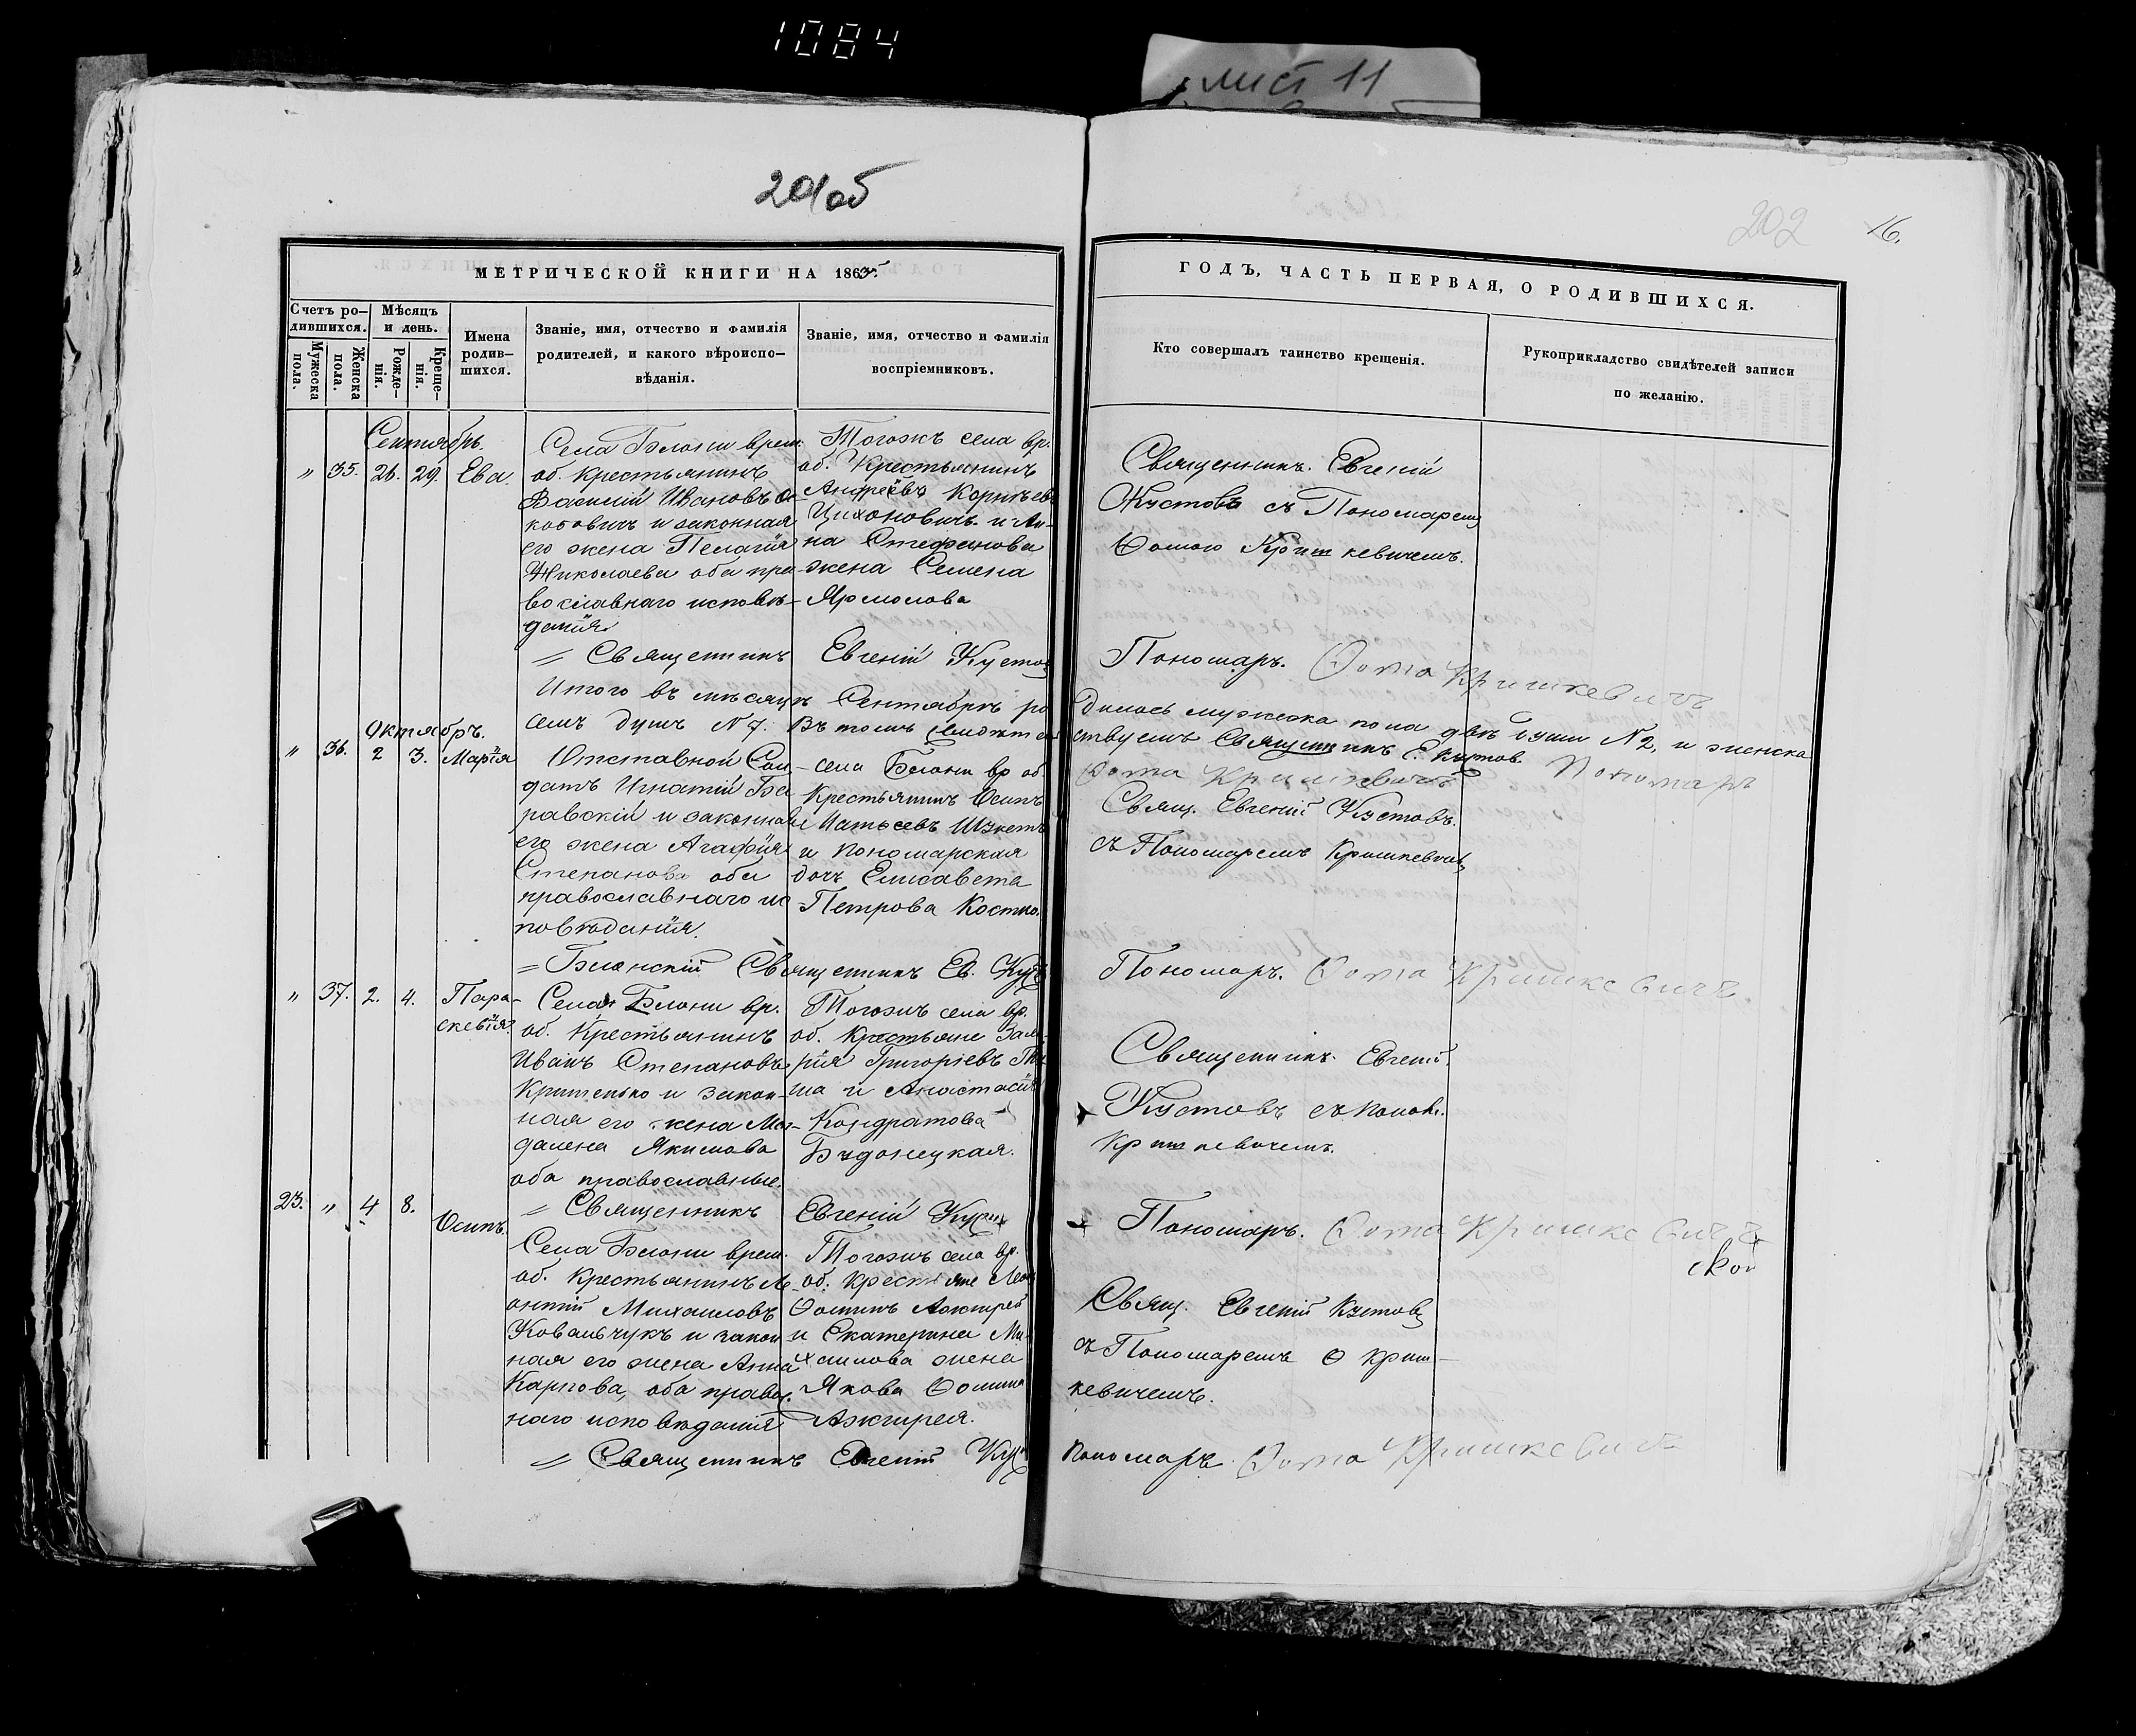 1084
лист 11
201об
202
16.
МЕТРИЧЕСКОЙ КНИГИ НА 1865
ГОДЪ, ЧАСТЬ ПЕРВАЯ, О РОДИВШИХСЯ.
Счетъ ро-
дившихся.
Мужеска
пола.
Женска
пола.
Мѣсяцъ
и день.
Рожде-
нія.
Креще-
нія.
Имена
родив-
шихся.
Званіе, имя, отчество и фамилія
родителей, и какого вѣроиспо-
вѣданія.
Званіе, имя, отчество и фамилія
воспріемниковъ.
Кто совершалъ таинство крещенія.
Рукоприкладство свидѣтелей записи
по желанію.
Сентябрь.
" 35. 26. 29. Ева.
Села Блони врем.
об. крестьянинъ
Василій Ивановъ
и законная
его жена Пелагія
Николаева оба пра-
вославнаго исповѣ-
данія
Тогожъ села вр.
об. Крестьянинъ
Андреевъ
Цихоновичъ и Ан-
на Стефанова
жена Семена
Ярмолова
Священникъ Евгеній
Кустовъ съ Пономаремъ
Ѳомою Кришкевичемъ.
= Священникъ Евгеній Кустовъ
Пономарь. Ѳома Кришкевичъ
Итого въ мѣсяцѣ Сентябрѣ ро
дилось мужеска пола двѣ души N 2, и женска
семь душъ N 7. Въ томъ
Священникъ Е. Кустов. Пономарь
Ѳома Кришкевичъ
Октябрь.
" 36. 2 3. Марія
Отставной Сол-
датъ Игнатій
и законная
его жена Агафія
Степанова оба
православнаго ис
повѣданія.
села Блони вр. об.
Крестьянинъ Осипъ
и пономарская
дочь Елисавета
Петрова
Свящ. Евгеній Кустовъ.
съ Пономаремъ Кришкевичемъ
= Блонскій Священникъ Ев.
Пономарь. Ѳома Кришкевичъ.
" 37. 2. 4. Пара-
скевія.
Села Блони вр.
об. Крестьянинъ
Иванъ Степановъ
и закон-
ная его жена Маг-
далена Якимова
оба православные.
Тогожъ села вр.
об. Крестьяне Заха-
рія Григоріевъ
и Анастасія
Кондратова
Священникъ Евгеній.
Кустовъ съ поном.
Кришкевичемъ.
= Священникъ Евгеній
Пономарь. Ѳома Кришкевичъ
23. " 4 8. Осипъ.
Села Блони врем.
об. Крестьянинъ Ле-
онтій Михаиловъ
Ковальчукъ и закон
ная его жена Анна
Карпова, оба правос.
наго исповѣданія
Тогожъ села вр.
об. крестьяне
Ѳоминъ Ажгирей
и Екатерина Ми-
хаилова жена
Якова Ѳомина
Ажгирея.
Свящ. Евгеній Кустовъ
съ Пономаремъ Ѳ Криш-
кевичемъ.
= Священникъ Евгеній
Пономарь Ѳома Кришкевичъ